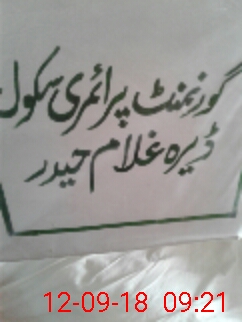 گورنمنٹ پرائمری سکول
ڈیرہ غلام حیدر
12-09-18 09:21